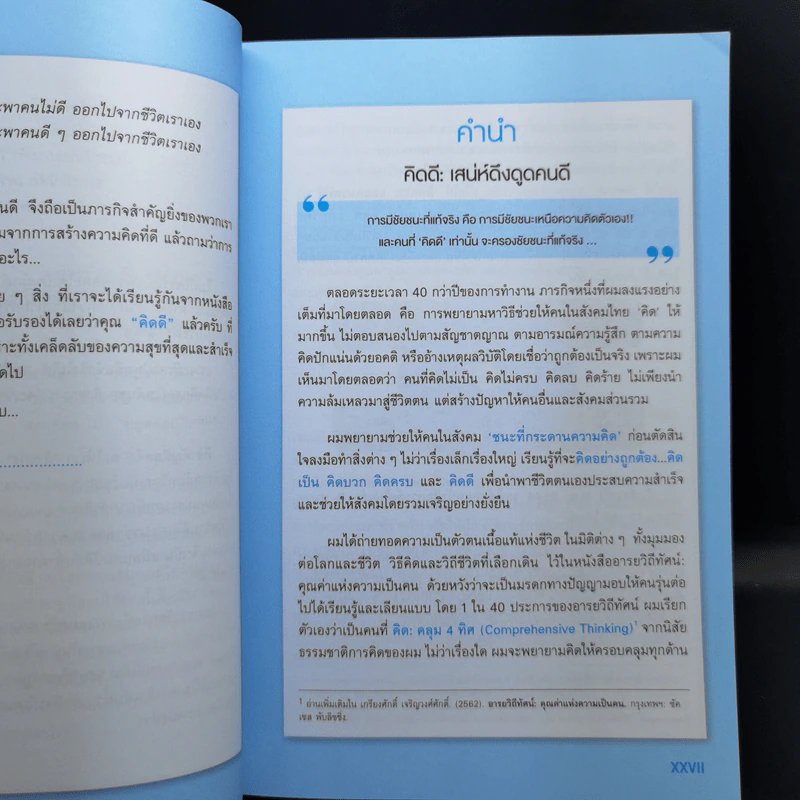 ะพาคนไม่ดี ออกไปจากชีวิตเราเอง
ะพาคนดี ๆ ออกไปจากชีวิตเราเอง
นดี จึงถือเป็นภารกิจสำคัญยิ่งของพวกเรา
มจากการสร้างความคิดที่ดี แล้วถามว่าการ
อะไร...
ย ๆ สิ่ง ที่เราจะได้เรียนรู้กันจากหนังสือ
อรับรองได้เลยว่าคุณ “คิดดี” แล้วครับ ที่
ราะทั้งเคล็ดลับของความสุขที่สุดและสำเร็จ
ดไป
บ...
คำนำ
คิดดี: เสน่ห์ดึงดูดคนดี
“
การมีชัยชนะที่แท้จริง คือ การมีชัยชนะเหนือความคิดตัวเอง!!
และคนที่ ‘คิดดี’ เท่านั้น จะครองชัยชนะที่แท้จริง ...
”
ตลอดระยะเวลา 40 กว่าปีของการทำงาน ภารกิจหนึ่งที่ผมลงแรงอย่าง
เต็มที่มาโดยตลอด คือ การพยายามหาวิธีช่วยให้คนในสังคมไทย ‘คิด’ ให้
มากขึ้น ไม่ตอบสนองไปตามสัญชาตญาณ ตามอารมณ์ความรู้สึก ตามความ
คิดปักแน่นด้วยอคติ หรืออ้างเหตุผลวิบัติโดยเชื่อว่าถูกต้องเป็นจริง เพราะผม
เห็นมาโดยตลอดว่า คนที่คิดไม่เป็น คิดไม่ครบ คิดลบ คิดร้าย ไม่เพียงนำ
ความล้มเหลวมาสู่ชีวิตตน แต่สร้างปัญหาให้คนอื่นและสังคมส่วนรวม
ผมพยายามช่วยให้คนในสังคม ‘ชนะที่กระดานความคิด’ ก่อนตัดสิน
ใจลงมือทำสิ่งต่าง ๆ ไม่ว่าเรื่องเล็กเรื่องใหญ่ เรียนรู้ที่จะคิดอย่างถูกต้อง...คิด
เป็น คิดบวก คิดครบ และ คิดดี เพื่อนำพาชีวิตตนเองประสบความสำเร็จ
และช่วยให้สังคมโดยรวมเจริญอย่างยั่งยืน
ผมได้ถ่ายทอดความเป็นตัวตนเนื้อแท้แห่งชีวิต ในมิติต่าง ๆ ทั้งมุมมอง
ต่อโลกและชีวิต วิธีคิดและวิถีชีวิตที่เลือกเดิน ไว้ในหนังสืออารยวิถีทัศน์:
คุณค่าแห่งความเป็นคน ด้วยหวังว่าจะเป็นมรดกทางปัญญามอบให้คนรุ่นต่อ
ไปได้เรียนรู้และเลียนแบบ โดย 1 ใน 40 ประการของอารยวิถีทัศน์ ผมเรียก
ตัวเองว่าเป็นคนที่ คิด: คลุม 4 ทิศ (Comprehensive Thinking)¹ จากนิสัย
ธรรมชาติการคิดของผม ไม่ว่าเรื่องใด ผมจะพยายามคิดให้ครอบคลุมทุกด้าน
¹ อ่านเพิ่มเติมใน เกรียงศักดิ์ เจริญวงศ์ศักดิ์. (2562). อารยวิถีทัศน์: คุณค่าแห่งความเป็นคน. กรุงเทพฯ: ซัค
เซส พับลิชชิ่ง.
XXVII